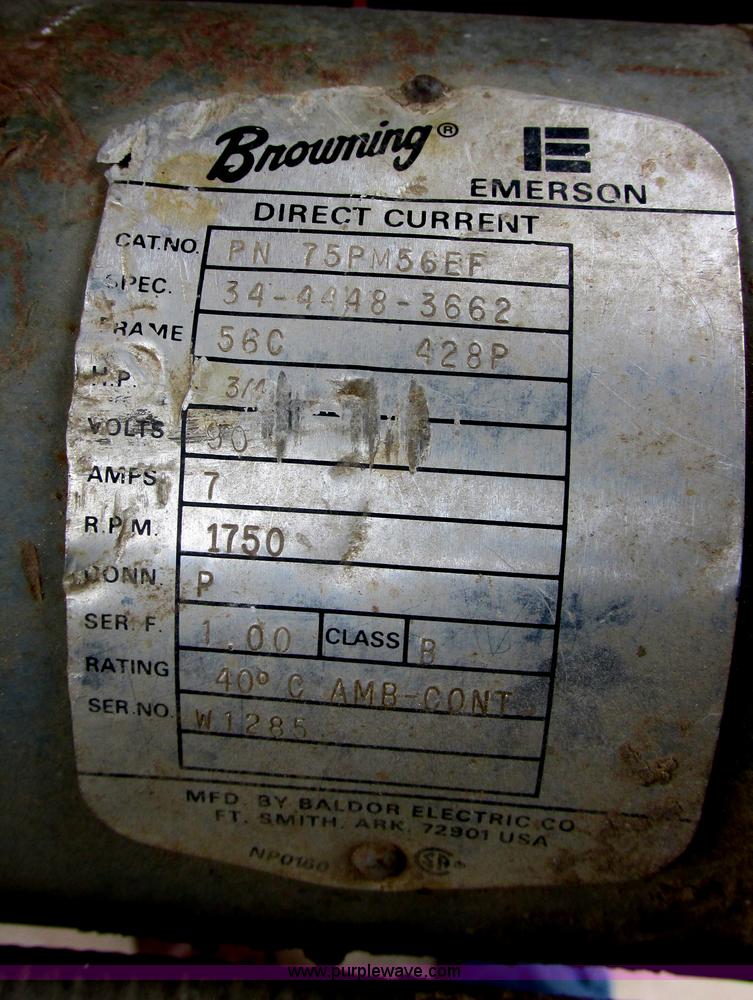 Browning®
EMERSON
DIRECT CURRENT
CAT.NO. PN 75PM56EF
SPEC. 34-4448-3662
FRAME 56C 428P
H.P. 3/4
VOLTS 90
AMPS 7
R.P.M. 1750
CONN. P
SER. F. 1.00 CLASS B
RATING 40° C AMB-CONT
SER.NO. W1285
MFD. BY BALDOR ELECTRIC CO.
FT. SMITH, ARK. 72901 USA
NP0160
www.purplewave.com